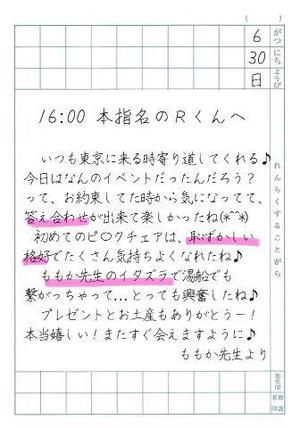 ( )
6 がつ
30 にち
日 ようび
れんらくすることがら
16:00 本指名のRくんへ
いつも東京に来る時寄り道してくれる♪
今日はなんのイベントだったんだろう?
って、お約束してた時から気になってて、
答え合わせが出来て楽しかったね(*^^*)
初めてのピ〇クチェアは、恥ずかしい
格好でたくさん気持ちよくなれたね♪
ももか先生のイタズラで湯船でも
繋がっちゃって...とっても興奮したね♪
プレゼントとお土産もありがとうー!
本当嬉しい!またすぐ会えますように♪
ももか先生より